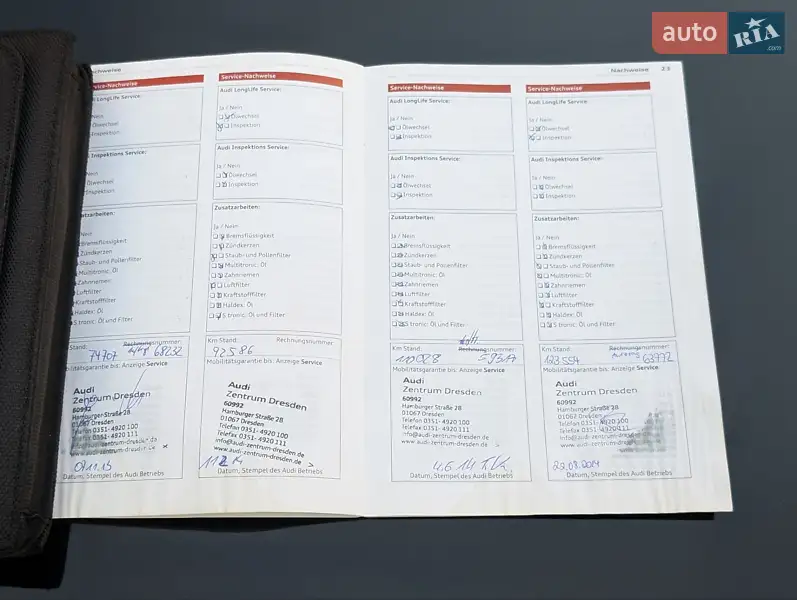 auto RIA .com
Nachweise
Service-Nachweise
LongLife Service:
Nein
Ölwechsel
Inspektion
Inspektions Service:
Nein
Ölwechsel
Inspektion
Nein
Bremsflüssigkeit
Zündkerzen
Staub- und Pollenfilter
Multitronic: Öl
Zahnriemen
Luftfilter
Kraftstofffilter
Haldex: Öl
S tronic: Öl und Filter
Stand: Rechnungsnummer:
74707 68232
Mobilitätsgarantie bis: Anzeige Service
Audi
Zentrum Dresden
60992
Hamburger Straße 28
01067 Dresden
Telefon 0351-4920 100
Telefax 0351-4920 111
info@audi-zentrum-dresden.de
www.audi-zentrum-dresden.de
Datum, Stempel des Audi Betriebs
Service-Nachweise
Audi LongLife Service:
Ja / Nein
Ölwechsel
Inspektion
Audi Inspektions Service:
Ja / Nein
Ölwechsel
Inspektion
Zusatzarbeiten:
Ja / Nein
Bremsflüssigkeit
Zündkerzen
Staub- und Pollenfilter
Multitronic: Öl
Zahnriemen
Luftfilter
Kraftstofffilter
Haldex: Öl
S tronic: Öl und Filter
Km Stand: Rechnungsnummer:
92586
Mobilitätsgarantie bis: Anzeige Service
Audi
Zentrum Dresden
60992
Hamburger Straße 28
01067 Dresden
Telefon 0351-4920 100
Telefax 0351-4920 111
info@audi-zentrum-dresden.de
www.audi-zentrum-dresden.de
Datum, Stempel des Audi Betriebs
Service-Nachweise
Audi LongLife Service:
Ja / Nein
Ölwechsel
Inspektion
Audi Inspektions Service:
Ja / Nein
Ölwechsel
Inspektion
Zusatzarbeiten:
Ja / Nein
Bremsflüssigkeit
Zündkerzen
Staub- und Pollenfilter
Multitronic: Öl
Zahnriemen
Luftfilter
Kraftstofffilter
Haldex: Öl
S tronic: Öl und Filter
Km Stand: Rechnungsnummer:
Mobilitätsgarantie bis: Anzeige Service
Audi
Zentrum Dresden
60992
Hamburger Straße 28
01067 Dresden
Telefon 0351-4920 100
Telefax 0351-4920 111
info@audi-zentrum-dresden.de
www.audi-zentrum-dresden.de
4.6.14
Datum, Stempel des Audi Betriebs
Nachweise 23
Service-Nachweise
Audi LongLife Service:
Ja / Nein
Ölwechsel
Inspektion
Audi Inspektions Service:
Ja / Nein
Ölwechsel
Inspektion
Zusatzarbeiten:
Ja / Nein
Bremsflüssigkeit
Zündkerzen
Staub- und Pollenfilter
Multitronic: Öl
Zahnriemen
Luftfilter
Kraftstofffilter
Haldex: Öl
S tronic: Öl und Filter
Km Stand: Rechnungsnummer:
123554 63992
Mobilitätsgarantie bis: Anzeige Service
Audi
Zentrum Dresden
60992
Hamburger Straße 28
01067 Dresden
Telefon 0351-4920 100
Telefax 0351-4920 111
info@audi-zentrum-dresden.de
www.audi-zentrum-dresden.de
22.08.2014
Datum, Stempel des Audi Betriebs